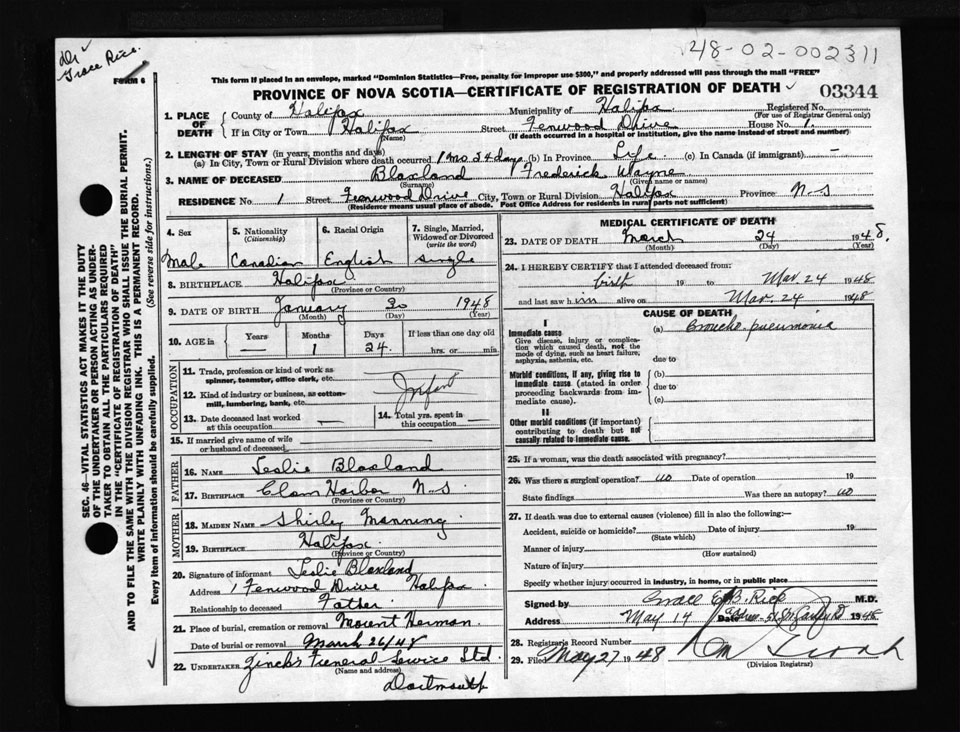 Dr Grace Rice.
48-02-002311
FORM 6
This form if placed in an envelope, marked "Dominion Statistics—Free, penalty for improper use $300," and properly addressed will pass through the mail "FREE"
PROVINCE OF NOVA SCOTIA—CERTIFICATE OF REGISTRATION OF DEATH
03344
SEC. 46—VITAL STATISTICS ACT MAKES IT THE DUTY
OF THE UNDERTAKER OR PERSON ACTING AS UNDER-
TAKER TO OBTAIN ALL THE PARTICULARS REQUIRED
IN THE "CERTIFICATE OF REGISTRATION OF DEATH"
AND TO FILE THE SAME WITH THE DIVISION REGISTRAR WHO SHALL ISSUE THE BURIAL PERMIT.
WRITE PLAINLY WITH UNFADING INK. THIS IS A PERMANENT RECORD.
Every item of information should be carefully supplied. (See reverse side for instructions.)
1. PLACE OF DEATH
County of Halifax Municipality of Halifax Registered No.
(For use of Registrar General only)
If in City or Town Halifax Street Fenwood Drive House No. 1
(Name) (If death occurred in a hospital or institution, give the name instead of street and number)
2. LENGTH OF STAY (in years, months and days)
(a) In City, Town or Rural Division where death occurred 1 mo 24 days (b) In Province Life (c) In Canada (if immigrant) —
3. NAME OF DECEASED Blaxland Frederick Wayne
(Surname) (Given name or names)
RESIDENCE No. 1 Street Fenwood Drive City, Town or Rural Division Halifax Province N-S
(Residence means usual place of abode. Post Office Address for residents in rural parts not sufficient)
4. Sex Male
5. Nationality (Citizenship) Canadian
6. Racial Origin English
7. Single, Married, Widowed or Divorced (write the word) single
8. BIRTHPLACE Halifax
(Province or Country)
9. DATE OF BIRTH January 30 1948
(Month) (Day) (Year)
10. AGE in Years — Months 1 Days 24. If less than one day old
hrs. or min.
OCCUPATION
11. Trade, profession or kind of work as
spinner, teamster, office clerk, etc.
12. Kind of industry or business, as cotton-
mill, lumbering, bank, etc. Infant
13. Date deceased last worked
at this occupation —
14. Total yrs. spent in
this occupation —
15. If married give name of wife
or husband of deceased
FATHER
16. NAME Leslie Blaxland
17. BIRTHPLACE Clam Harbor N-S
(Province or Country)
MOTHER
18. MAIDEN NAME Shirley Manning
19. BIRTHPLACE Halifax
(Province or Country)
20. Signature of informant Leslie Blaxland
Address 1 Fenwood Drive Halifax
Relationship to deceased Father
21. Place of burial, cremation or removal Mount Herman.
Date of burial or removal March 26/48
22. UNDERTAKER Zinck's Funeral Service Ltd.
(Name and address)
Dartmouth
MEDICAL CERTIFICATE OF DEATH
23. DATE OF DEATH March 24 1948.
(Month) (Day) (Year)
24. I HEREBY CERTIFY that I attended deceased from:
birth 19 to Mar. 24 1948
and last saw him alive on Mar. 24 1948
CAUSE OF DEATH
I
Immediate cause
Give disease, injury or complica-
tion which caused death, not the
mode of dying, such as heart failure,
asphyxia, asthenia, etc.
(a) Broncho-pneumonia
due to
Morbid conditions, if any, giving rise to
immediate cause (stated in order
proceeding backwards from im-
mediate cause).
(b)
due to
(c)
II
Other morbid conditions (if important)
contributing to death but not
causally related to immediate cause.
25. If a woman, was the death associated with pregnancy?
26. Was there a surgical operation? no Date of operation 19
State findings Was there an autopsy? no
27. If death was due to external causes (violence) fill in also the following:—
Accident, suicide or homicide? Date of injury 19
(State which)
Manner of injury
(How sustained)
Nature of injury
Specify whether injury occurred in industry, in home, or in public place
Signed by Grace E. B. Rice M.D.
Address May 14 Date 1948
28. Registrar's Record Number
29. Filed May 27 1948
(Division Registrar)